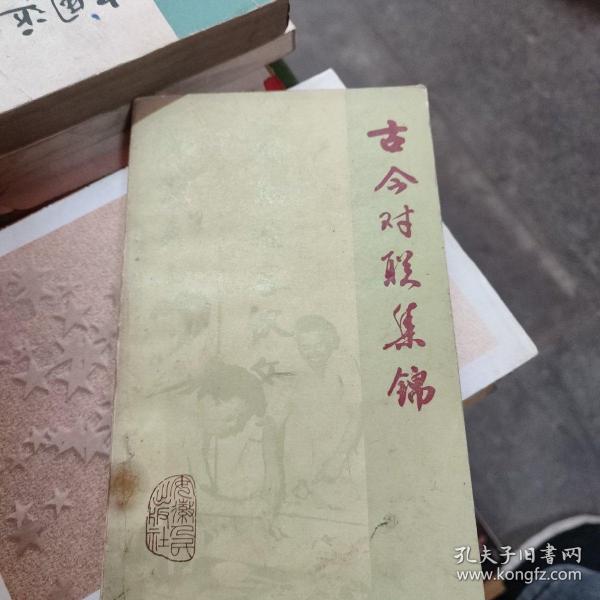 古今对联集锦
安徽人民出版社
孔夫子旧书网
www.kongfz.com